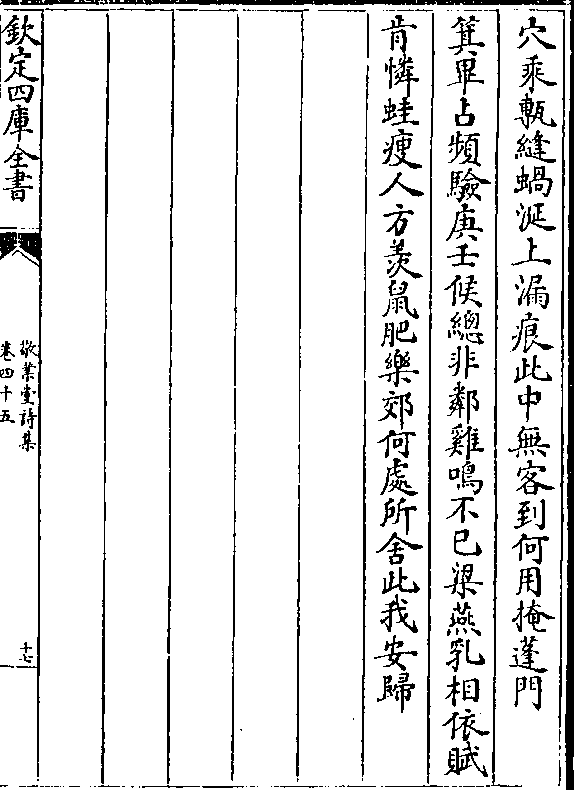 穴乘甎縫蝸涎上漏痕此中無客到何用掩蓬門
箕畢占頻驗庚壬候總非鄰雞鳴不已梁燕乳相依賦
肯憐蛙瘦人方羨鼠肥樂郊何處所舍此我安歸
欽定四庫全書
敬業堂詩集
卷四十五
十七